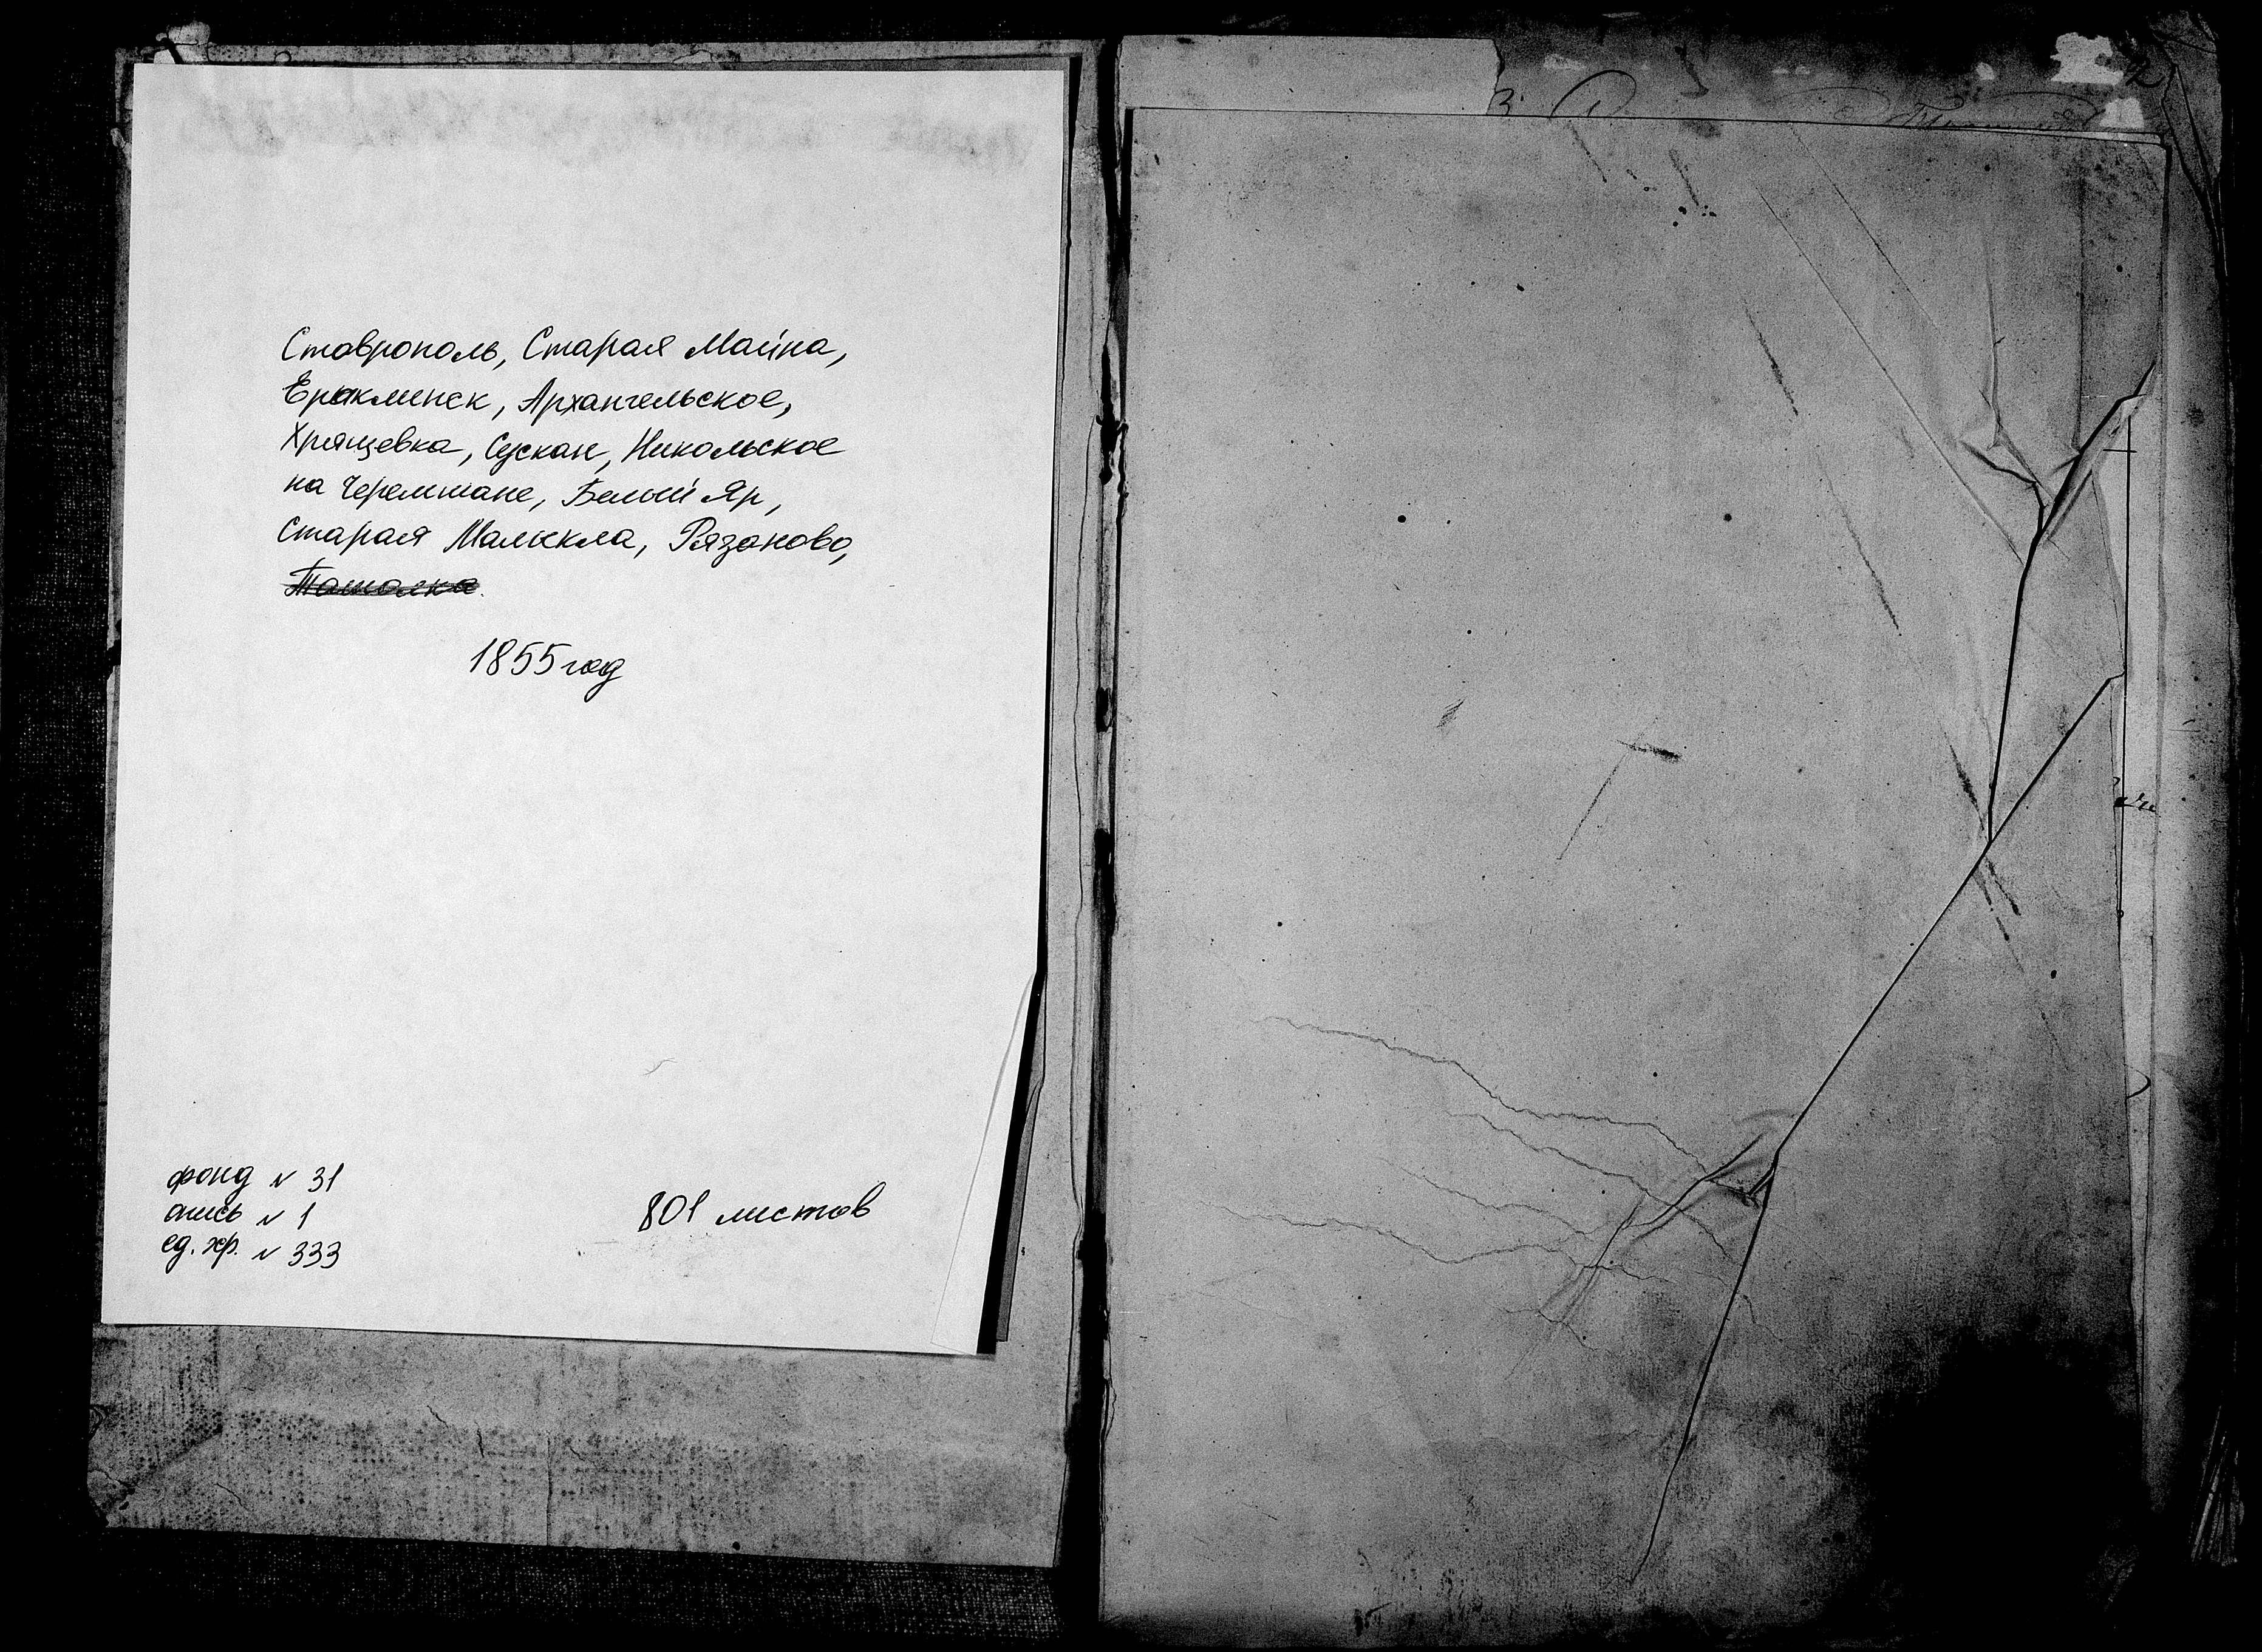 Ставрополь, Старая Майна,
Ерыклинск, Архангельское,
Хрящевка, Сускан, Никольское
на Черемшане, Белый Яр,
Старая Малыкла, Рязаново,
Ташолка.
1855 год
фонд N 31
опись N 1
ед. хр. N 333
801 листов
2